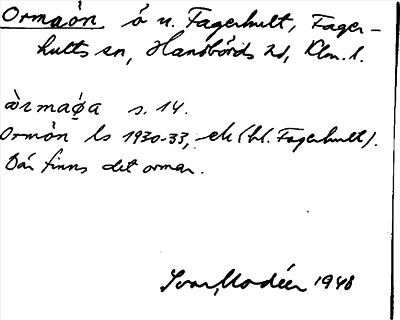 Ormaön ö u. Fagerhult, Fager-
hults sn, Handbörds hd, Klm. l.
òrmaǿa s. 14.
Ormön ls 1930-33, ek (bl. Fagerhult).
Där finns det ormar.
Ivar Modéer 1948